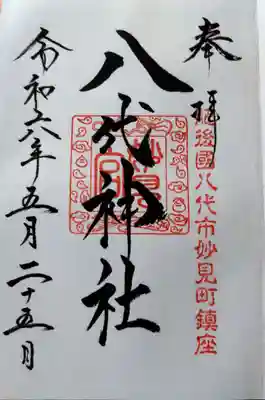 奉拝
肥後國八代市妙見町鎮座
八代神社
妙見宮
令和六年五月二十五日